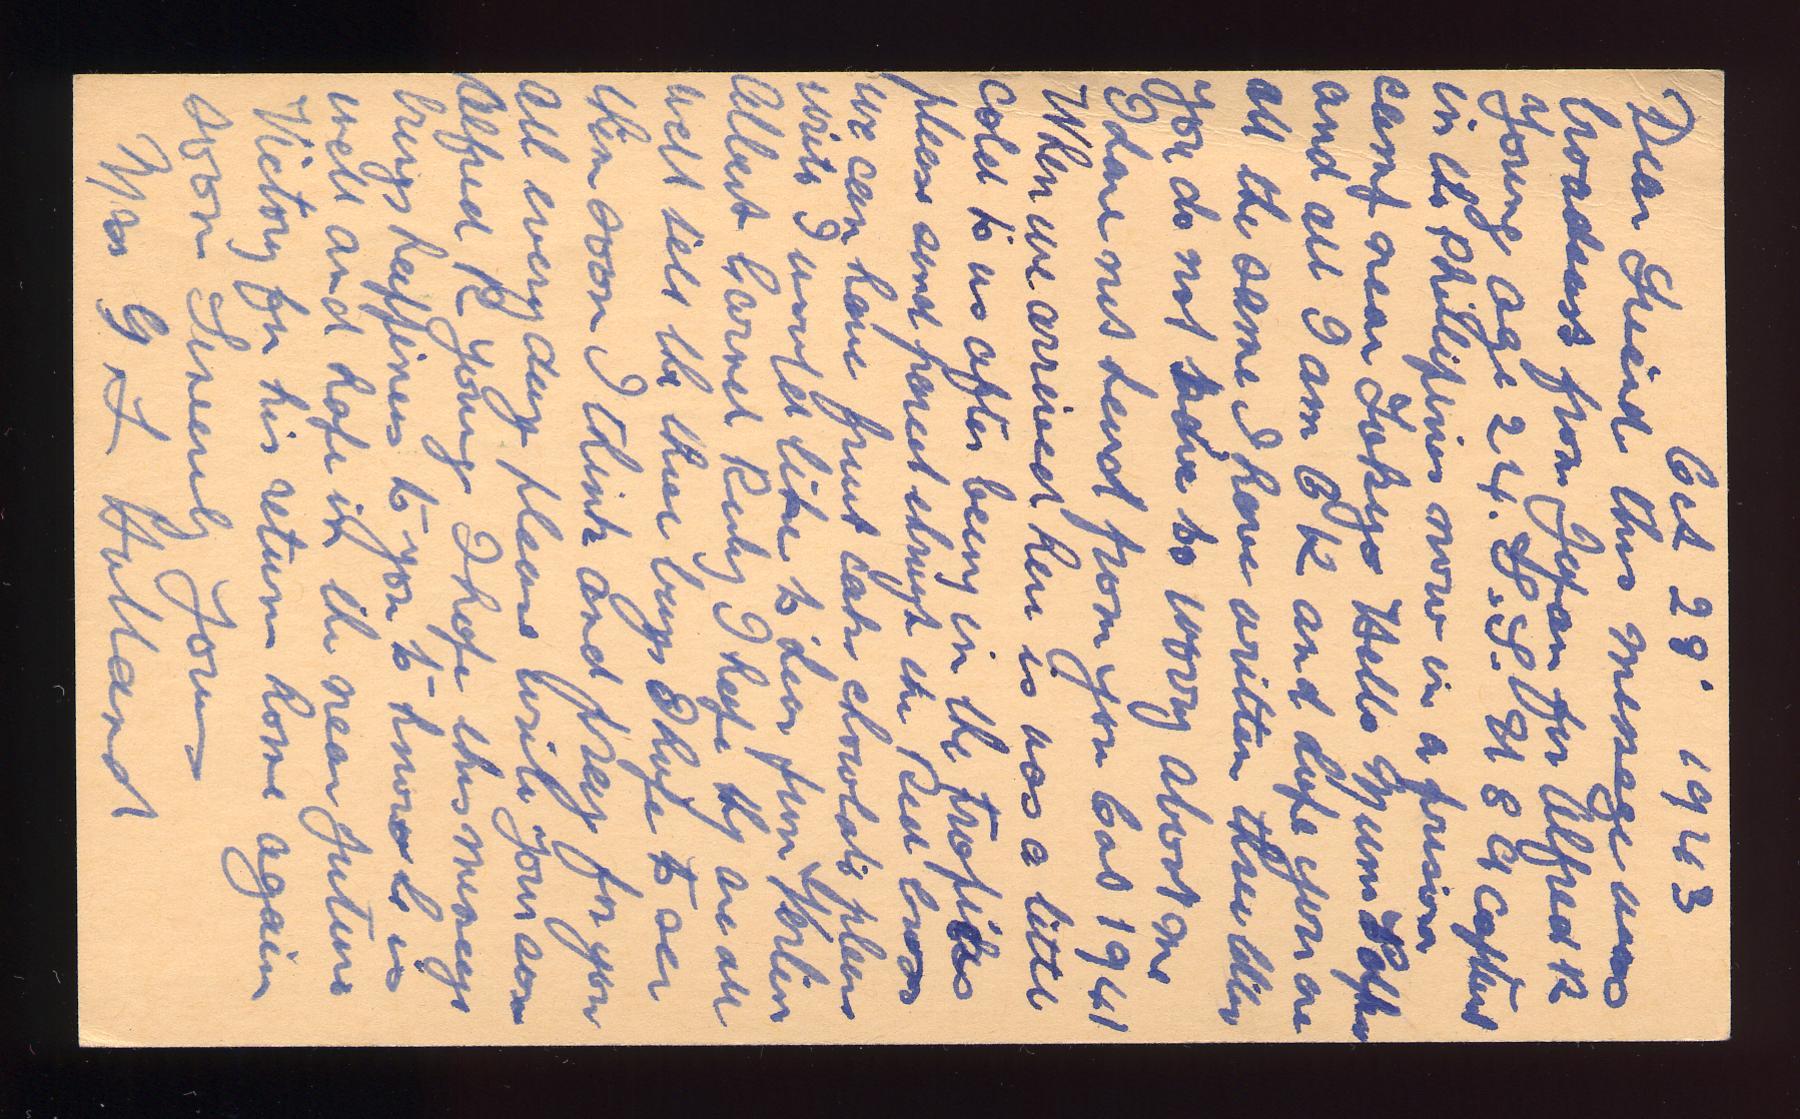 Oct 28' 1943
Dear Freind this message was
broadcast from Japan for Alfred R
Young age 24. U.S.A captured
in the Phillipines now in a prison
camp near Tokyo Hello Mum Father
and all I am OK and hope you are
all the same I have written three letters
you do not have to worry about me
I have not heard from you but 1941
When we arrived here is was a little
cold to us after being in the tropics
please send parcel through the Red Cross
we can have fruit cake chocolate please
write I would like to hear from
Albert Ruby I hope thy are all
well tell the the boys I hope to see
them soon I think and pray for you
all every day please write your son
Alfred R Young I hope this message
brings happiness to you to know he is
well and hope in the near future
Victory for his return home again
soon Sincerely Yours
Mrs G L Holland